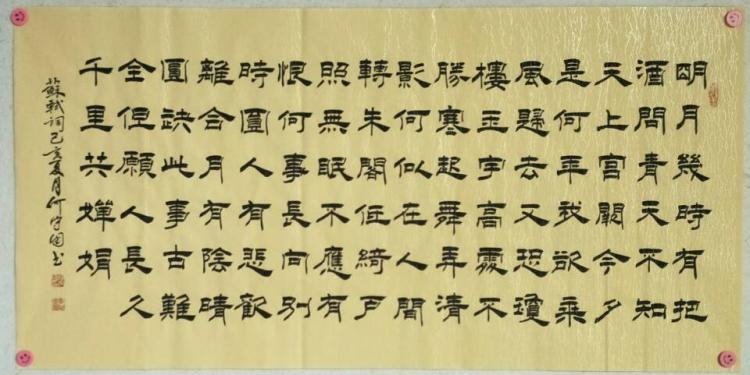 明月幾時有把
酒問青天不知
天上宮闕今夕
是何年我欲乘
風歸去又恐瓊
樓玉宇高處不
勝寒起舞弄清
影何似在人間
轉朱閣低綺戶
照無眠不應有
恨何事長向別
時圓人有悲歡
離合月有陰晴
圓缺此事古難
全但願人長久
千里共嬋娟
蘇軾詞己亥夏月何守書